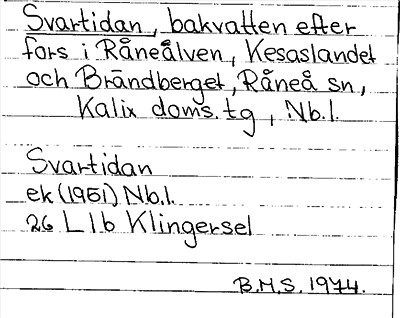 Svartidan, bakvatten efter
fors i Råneälven, Kesaslandet
och Brändberget, Råneå sn,
Kalix doms.tg, Nb.l.
Svartidan
ek (1951) Nb.l.
26 L 1b Klingersel
B.M.S. 1974.